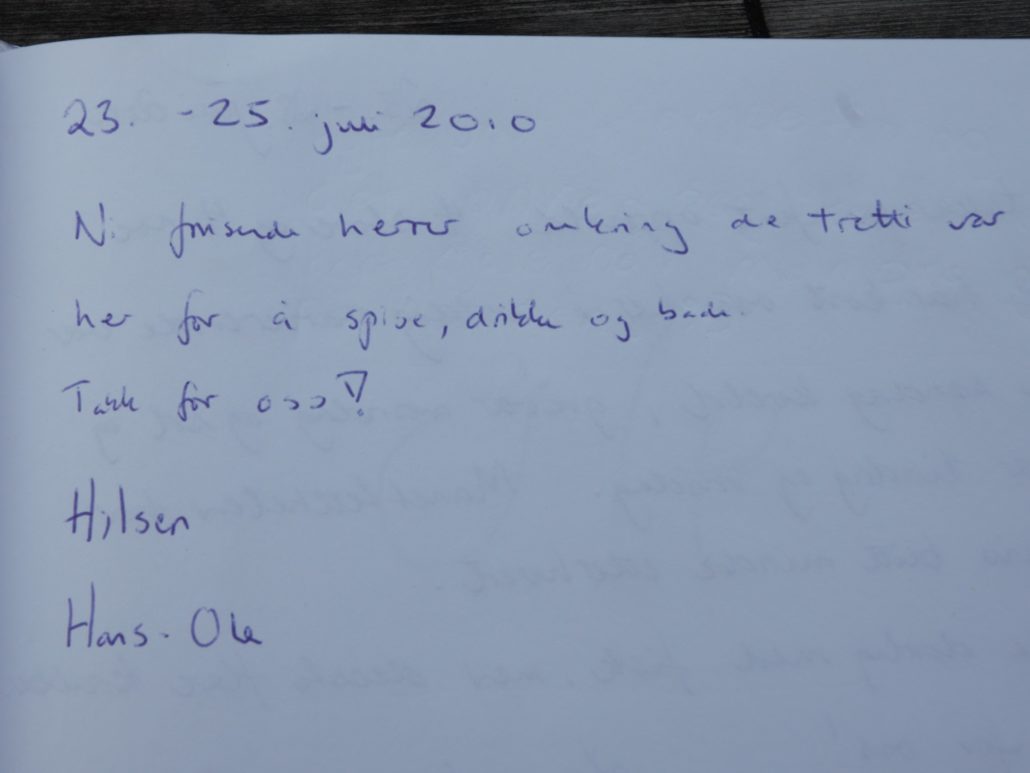 23. - 25. juli 2010
Ni frisende herrer omkring de tretti var
her for å spise, drikke og bade.
Takk for oss!
Hilsen
Hans-Ole